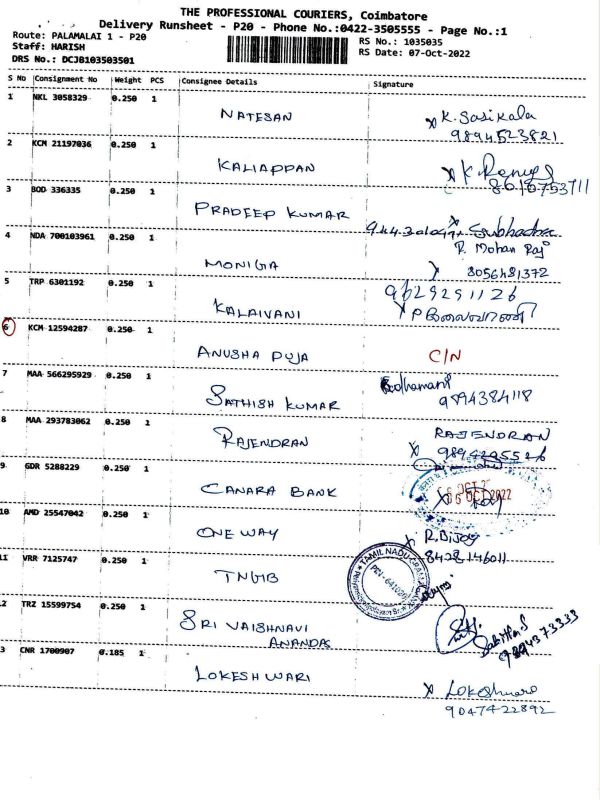 THE PROFESSIONAL COURIERS, Coimbatore
Delivery Runsheet - P20 - Phone No.:0422-3505555 - Page No.:1
Route: PALAMALAI 1 - P20
Staff: HARISH
DRS No: DCJB103503501
RS No.: 1035035
RS Date: 07-Oct-2022
S No Consignment No Weight PCS Consignee Details Signature
1 NKL 3058329 0.250 1
NATESAN
x K. Sasikala
9894523821
2 KCM 21197036 0.250 1
KALIAPPAN
x K.
8610753711
3 BOD 336335 0.250 1
PRADEEP KUMAR
Subhadra
4 NDA 700103961 0.250 1
MONIGA
R. Mohan Raj
x 8056481372
5 TRP 6301192 0.250 1
KALAIVANI
9629291126
x P கலைவாணி
6 KCM 12594287 0.250 1
ANUSHA PUJA
C/N
7 MAA 566295929 0.250 1
SATHISH KUMAR
Bodhamani
9894384118
8 MAA 293783062 0.250 1
RAJENDRAN
RAJENDRAN
x 9894295526
9 GDR 5288229 0.250 1
CANARA BANK
OCT 2022
10 AMD 25547042 0.250 1
ONE WAY
x R.Bijoy
8428146011
11 VRR 7125747 0.250 1
TNGB
TAMIL NADU GRAMA
PIN - 641020
12 TRZ 15599754 0.250 1
SRI VAISHNAVI
ANANDAS
Sabitha.S
9894373333
13 CNR 1700907 0.185 1
LOKESHWARI
x Lokeshwari
9047422892